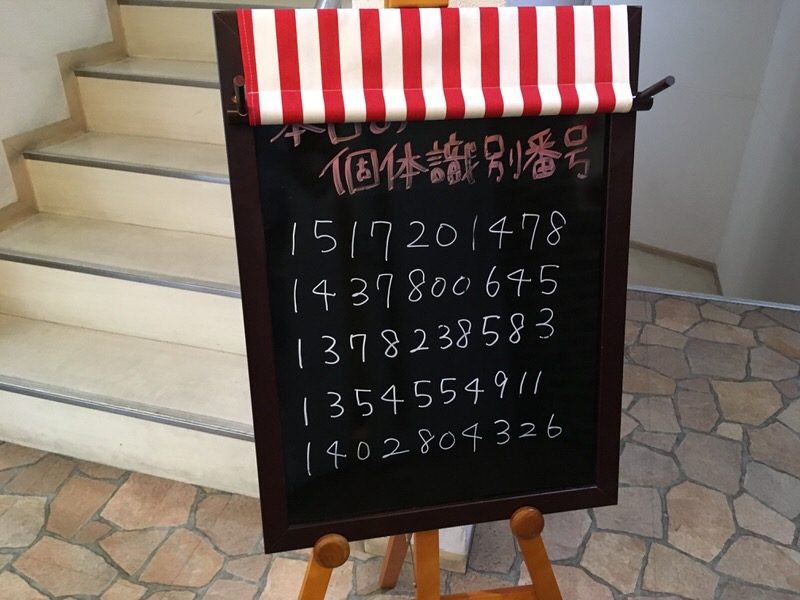 本日の
個体識別番号
1517201478
1437800645
1378238583
1354554911
1402804326